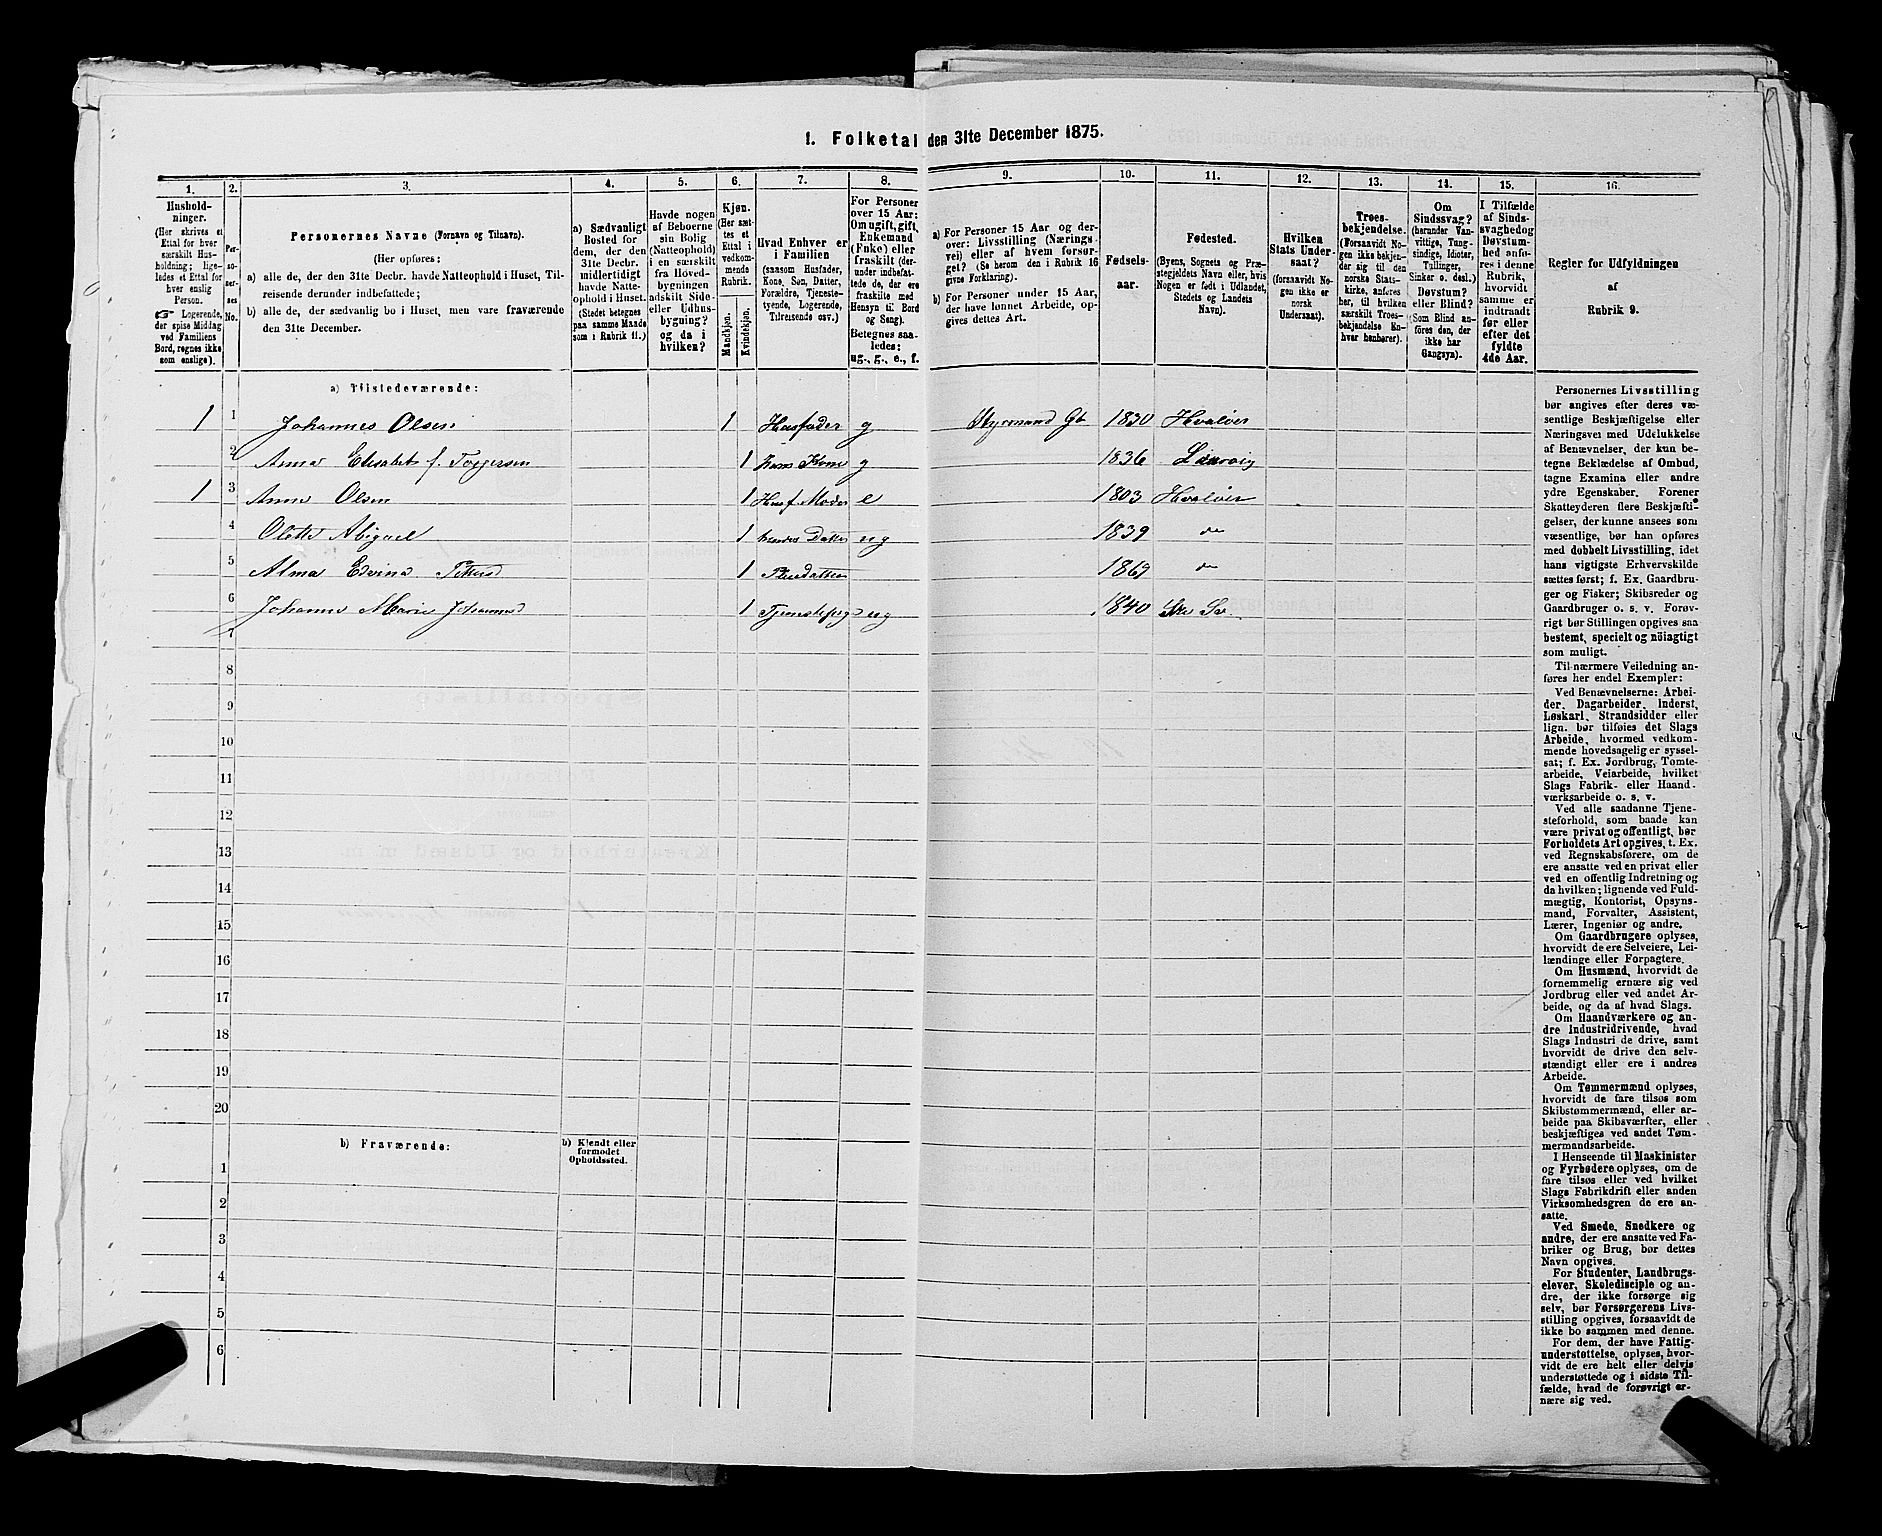 1. Folketal den 31te December 1875.
1. 2. 3. 4. 5. 6. 7. 8. 9. 10. 11. 12. 13. 14. 15. 16.
Hushold-
ninger.
(Her skrives et
Ettal for hver
særskilt Hus-
holdning; lige-
ledes et Ettal for
hver enslig
Person.
☞ Logerende,
der spise Middag
ved Familiens
Bord, regnes ikke
som enslige).
Per-
so-
ner-
nes
No.
Personernes Navne (Fornavn og Tilnavn).
(Her opføres:
a) alle de, der den 31te Decbr. havde Natteophold i Huset, Til-
reisende derunder indbefattede;
b) alle de, der sædvanlig bo i Huset, men vare fraværende
den 31te December.
a) Sædvanligt
Bosted for
dem, der den
31te Decbr.
midlertidigt
havde Natte-
ophold i Huset.
(Stedet betegnes
paa samme Maade
som i Rubrik 11.)
Havde nogen
af Beboerne
sin Bolig
(Natteophold)
i en særskilt
fra Hoved-
bygningen
adskilt Side-
eller Udhus-
bygning?
og da i
hvilken?
Kjøn.
(Her sæt-
tes et
Ettal i
vedkom-
mende
Rubrik.
Mandkjøn.
Kvindekjøn.
Hvad Enhver er
i Familien
(saasom Husfader,
Kone, Søn, Datter,
Forældre, Tjeneste-
tyende, Logerende,
Tilreisende osv.)
For Personer
over 15 Aar:
Om ugift, gift,
Enkemand
(Enke) eller
fraskilt (der-
under indbefat-
tede de, der ere
fraskilte med
Hensyn til Bord
og Seng).
Betegnes saa-
ledes:
ug., g., e., f.
a) For Personer 15 Aar og der-
over: Livsstilling (Nærings-
vei) eller af hvem forsør-
get? (Se herom den i Rubrik 16
givne Forklaring).
b) For Personer under 15 Aar,
der have lønnet Arbeide, op-
gives dettes Art.
Fødsels-
aar.
Fødested.
(Byens, Sognets og Præ-
stegjeldets Navn eller, hvis
Nogen er født i Udlandet,
Stedets og Landets
Navn).
Hvilken
Stats Under-
saat?
(forsaavidt No-
gen ikke er
norsk
Undersaat).
Troes-
bekjendelse.
(Forsaavidt No-
gen ikke bekjen-
der sig til den
norske Stats-
kirke, anføres
her, til hvilken
særskilt Troes-
bekjendelse En-
hver henhører).
Om
Sindssvag?
(herunder Van-
vittige, Tung-
sindige, Idioter,
Tullinger,
Sinker o. desl.)
Døvstum?
eller Blind?
(Som Blind an-
føres den, der
ikke har
Gangsyn).
I Tilfælde
af Sinds-
svaghed og
Døvstum-
hed anfø-
res i denne
Rubrik,
hvorvidt
samme er
indtraadt
før eller
efter det
fyldte
4de Aar.
Regler for Udfyldningen
af
Rubrik 9.
a) Tilstedeværende:
1 1 Johannes Olsen 1 Husfader g Styrmand Gb 1830 Hvaløer
2 Anna Elisabet f. Torgersen 1 hans Kone g 1836 Laurvig
1 3 Anne Olsen 1 Husf. Moder e 1803 Hvaløer
4 Olette Abigael 1 hendes Datter ug 1839 do
5 Alma Edvine 1 Pleiedatter 1869 do
6 Johanne Marie 1 ug 1840
7
8
9
10
11
12
13
14
15
16
17
18
19
20
b) Fraværende:
b) Kjendt eller
formodet
Opholdssted.
1
2
3
4
5
6
Personernes Livsstilling
bør angives efter deres væ-
sentlige Beskjæftigelse eller
Næringsvei med Udelukkelse
af Benævnelser, der kun be-
tegne Beklædelse af Ombud,
tagne Examina eller andre
ydre Egenskaber. Forener
Skatteyderen flere Beskjæfti-
gelser, der kunne ansees som
væsentlige, bør han opføres
med dobbelt Livsstilling, idet
hans vigtigste Erhvervskilde
sættes først; f. Ex. Gaardbru-
ger og Fisker; Skibsreder og
Gaardbruger o. s. v. Forøv-
rigt bør Stillingen opgives saa
bestemt, specielt og nöiagtigt
som muligt.
Til nærmere Veiledning an-
føres her endel Exempler:
Ved Benævnelserne: Arbei-
der, Dagarbeider, Inderst,
Løskarl, Strandsidder eller
lign. bør tilføies det Slags
Arbeide, hvormed vedkom-
mende hovedsagelig er syssel-
sat; f. Ex. Jordbrug, Tomte-
arbeide, Veiarbeide, hvilket
Slags Fabrik- eller Haand-
værksarbeide o. s. v.
Ved alle saadanne Tjene-
steforhold, som baade kan
være privat og offentligt, bør
Forholdets Art opgives, t. Ex.
ved Regnskabsførere, om de
ere ansatte ved en privat eller
ved en offentlig Indretning og
da hvilken; lignende ved Fuld-
mægtig, Kontorist, Opsyns-
mand, Forvalter, Assistent,
Lærer, Ingeniør og andre.
Om Gaardbrugere oplyses,
hvorvidt de ere Selveiere, Lei-
lændinge eller Forpagtere.
Om Husmænd, hvorvidt de
fornemmelig ernære sig ved
Jordbrug eller ved andet Ar-
beide, og da af hvad Slags.
Om Haandværkere og an-
dre Industridrivende, hvad
Slags Industri de drive, samt
hvorvidt de drive den selv-
stændigt eller ere i andres
Arbeide.
Om Tømmermænd oplyses,
hvorvidt de fare tilsøs som
Skibstømmermænd, eller ar-
beide paa Skibsværfter, eller
beskjæftiges ved andet Tøm-
mermandsarbeide.
I Henseende til Maskinister
og Fyrbødere oplyses, om de
fare tilsøs eller ved hvilket
Slags Fabrikdrift eller anden
Virksomhedsgren de ere an-
satte.
Ved Smede, Snedkere og
andre, der ere ansatte ved Fa-
briker og Brug, bør dettes
Navn opgives.
For Studenter, Landbrugs-
elever, Skoledisciple og an-
dre, der ikke forsørge sig
selv, bør Forsørgerens Livs-
stilling opgives, forsaavidt de
ikke bo sammen med denne.
For dem, der have Fattig-
understøttelse, oplyses, hvor-
vidt de ere helt eller delvis
understøttede og i sidste Til-
fælde, hvad de forøvrigt er-
nære sig ved.